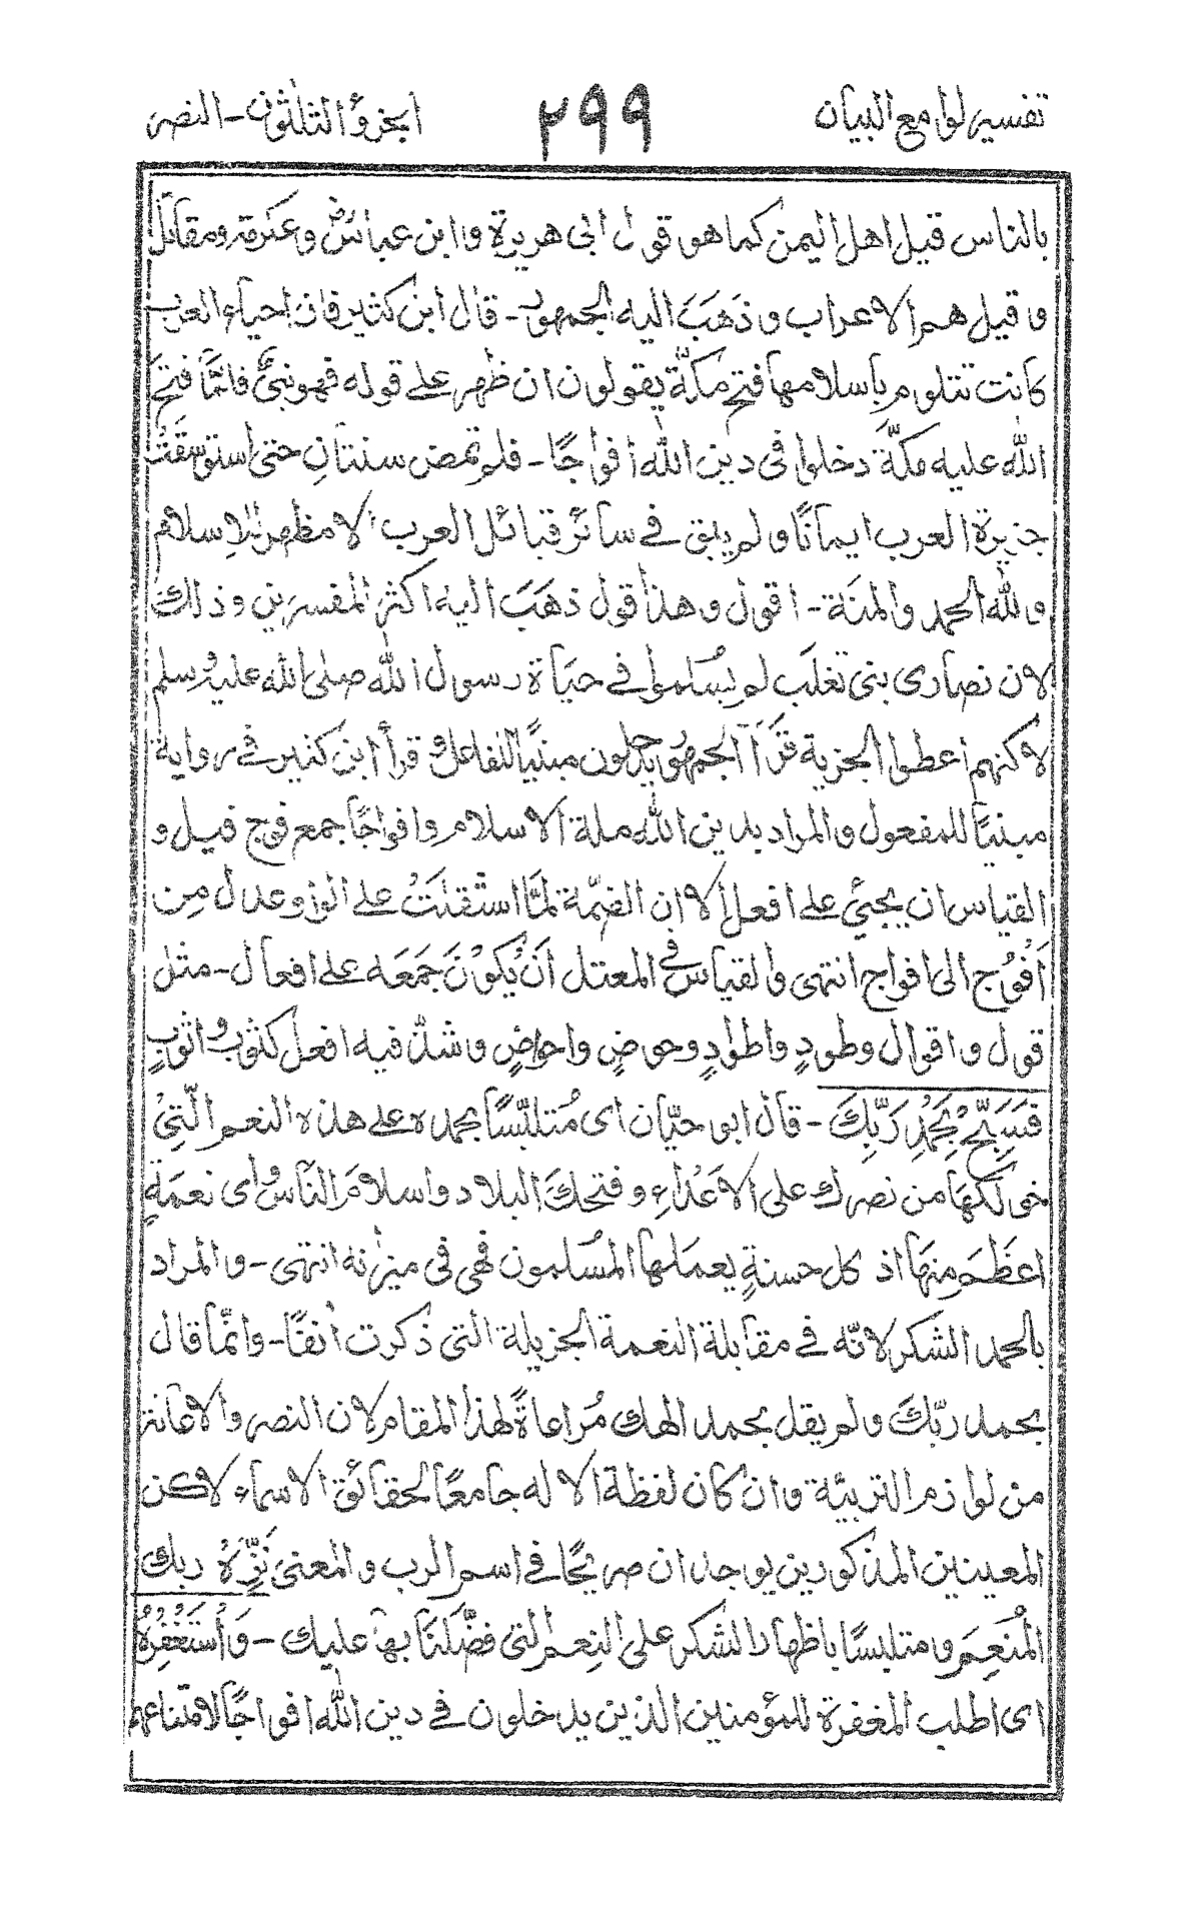 تفسير لوامع البيان ٢٩٩ الجزؤ الثلثون - النصر
بالناس قيل اهل اليمن كما هو قول ابى هريرة وابن عباس رض وعكرمة ومقاتل
وقيل هم الاعراب وذَهَبَ اليه الجمهور - قال ابن كثير فان احياء العرب
كانت تتلوم باسلامها فتح مكّة يقولون ان ظهر على قومه فهو نبىٌّ فلمّا فتحَ
الله عليه مكّةَ دخلوا فى دين الله افواجًا - فلم تمض سنتانِ حتى استوسَقَتْ
جزيرة العرب ايمانًا ولم يبق فى سائر قبائل العرب الا مظهر للاسلام
ولله الحمد والمنَة - اقول وهذا قول ذهَبَ اليه اكثر المفسرين وذلك
لان نصارى بنى تغلَب لم يُسلموا فى حيَاة رسول الله صلى الله عليه وسلم
لاكنهم اعطوا الجزية قَرَأ الجمهور يدخلون مبنيًّا للفاعل وقرأ ابن كثير فى رواية
مبنيًا للمفعول والمراد بدين الله ملة الاسلام وافواجًا جمع فوج قيل و
القياس ان يجيئ على افعل الا ان الضمّة لمَّا استثقلَتْ على الواو عدل من
اَفْوُج الى افواج انتهى والقياس فى المعتل اَنْ يُكوْنَ جَمَعَه على افعال - مثل
قول واقوال وطودٍ واطوادٍ وحوضٍ واحواضٍ وشذّ فيه افعل كثوب واثوبٍ
فَسَبِّحْ بِحَمْدِ رَبِّكَ - قال ابو حيّان اى مُتلبّسًا بحمده على هذه النعم الّتِىْ
خولكهَا من نصرك على الاَعْدَاءِ وفتحكَ البلاد واسلامَ النَّاس واى نعمَةٍ
اعظَم منهَا اذ كل حسنةٍ يعمَلها المُسلمون فهى فى ميزانه انتهى - والمراد
بالحمد الشكر لانّه فى مقابلة النعمة الجزيلة التى ذُكرت اٰنفًا - وانّما قال
بحمد ربّكَ ولم يقل بحمد الٰهك مُراعاةً لهذا المقام لان النصر والاعانة
من لوازم التربيّة وان كان لفظة الاله جامعًا لحقائق الاسماء لاكن
المعينين المذكورين يوجدان صريحًا فى اسم الرب والمعنى نَزِّهْ ربك
المُنعِمَ ومتلبسًا باظهار الشكر على النِعم التى فضّلنَا بها عليك - وَاسْتَغْفِرْهُ
اى اطلب المغفرة للمؤمنين الذين يدخلون فى دين الله افواجًا لامتناعهم